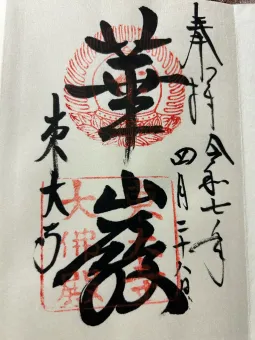 奉拝
令和七年
四月二十八日
華嚴
東大寺
大佛殿